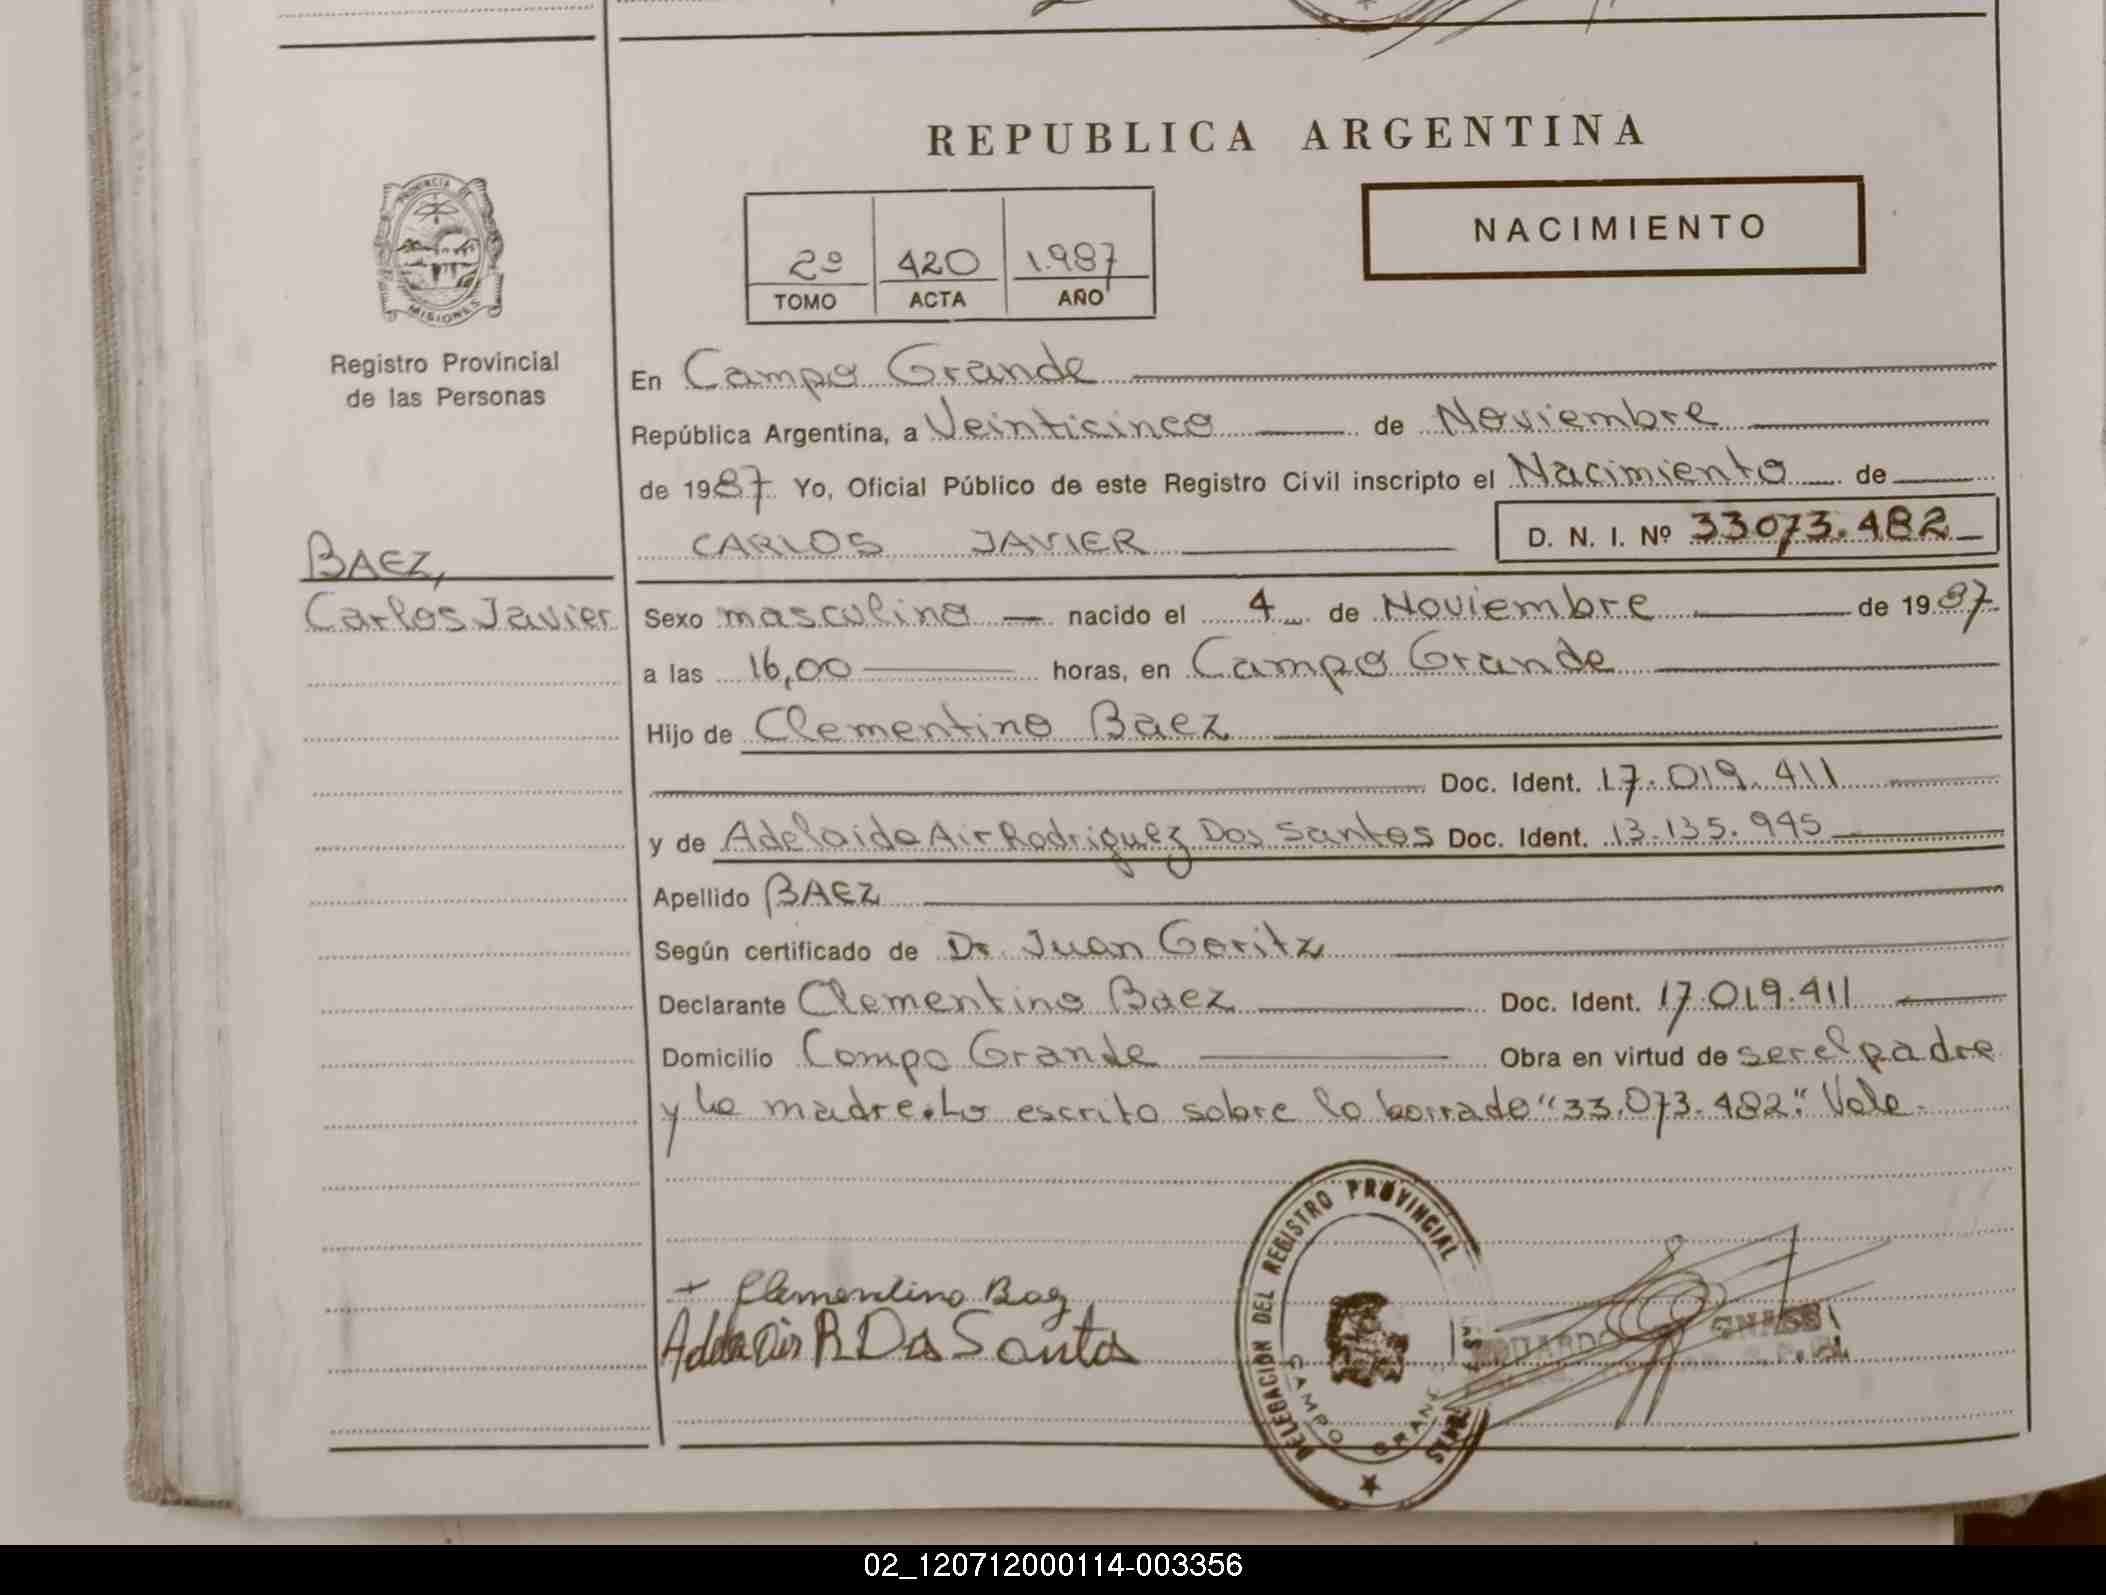 REPUBLICA ARGENTINA
PROVINCIA DE
MISIONES
Registro Provincial
de las Personas
2º 420 1.987
TOMO ACTA AÑO
NACIMIENTO
En Campo Grande
República Argentina, a Veinticinco de Noviembre
de 1987 Yo, Oficial Público de este Registro Civil inscripto el Nacimiento de
CARLOS JAVIER D. N. I. Nº 33073.482
BAEZ,
Carlos Javier
Sexo masculino nacido el 4 de Noviembre de 1987
a las 16,00 horas, en Campo Grande
Hijo de Clementino Baez
Doc. Ident. 17.019.411
y de Adelaide Air Rodriguez Dos Santos Doc. Ident. 13.135.945
Apellido BAEZ
Según certificado de Dr. Juan Goritz
Declarante Clementino Baez Doc. Ident. 17.019.411
Domicilio Campo Grande Obra en virtud de ser el padre
y la madre. Lo escrito sobre lo borrado "33.073.482". Vale.
DELEGACIÓN DEL REGISTRO PROVINCIAL
CAMPO
Clementino Baez
R Dos Santos
02_120712000114-003356